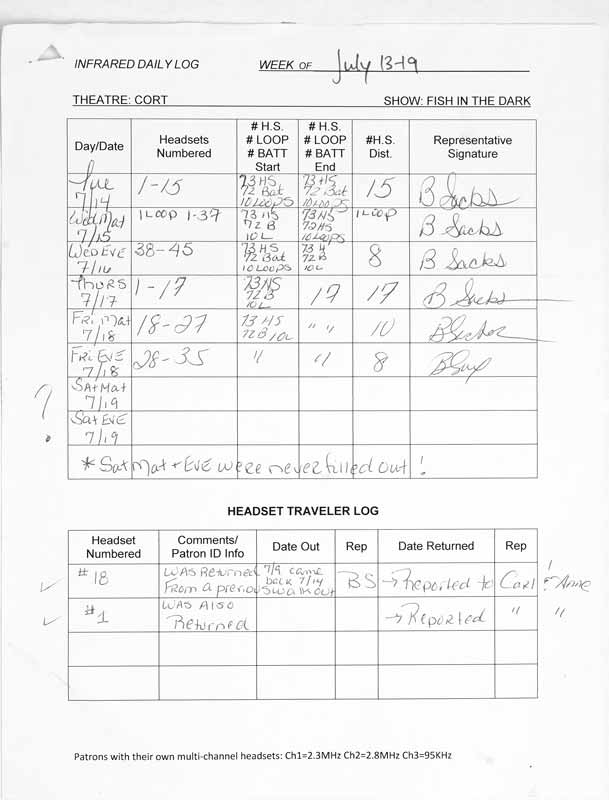 INFRARED DAILY LOG WEEK OF July 13-19
THEATRE: CORT SHOW: FISH IN THE DARK
Day/Date Headsets Numbered # H.S. # LOOP # BATT Start # H.S. # LOOP # BATT End #H.S. Dist. Representative Signature
Tue 7/14 1-15 73 HS 72 Bat 10 LOOPS 73 HS 72 Bat 10 LOOPS 15 B Sacks
Wed Mat 7/15 1 LOOP 1-37 73 HS 72 B 10 L 73 HS 72 HS 10 LOOPS 1 LOOP B Sacks
WED EVE 7/16 38-45 73 HS 72 Bat 10 LOOPS 73 H 72 B 10 L 8 B Sacks
THURS 7/17 1-17 73 HS 72 B 10 L 17 17 B Sacks
FRI Mat 7/18 18-27 73 HS 72 B 10L " " 10
FRI EVE 7/18 28-35 " " 8
SAt Mat 7/19
?
Sat EVE 7/19
* Sat Mat + EVE were never filled out !
HEADSET TRAVELER LOG
Headset Numbered Comments/ Patron ID Info Date Out Rep Date Returned Rep
# 18 WAS Returned From a previous walkout 7/9 came back 7/14 BS → Reported to Carl ! Anne
#1 WAS Also Returned → Reported " "
Patrons with their own multi-channel headsets: Ch1=2.3MHz Ch2=2.8MHz Ch3=95KHz